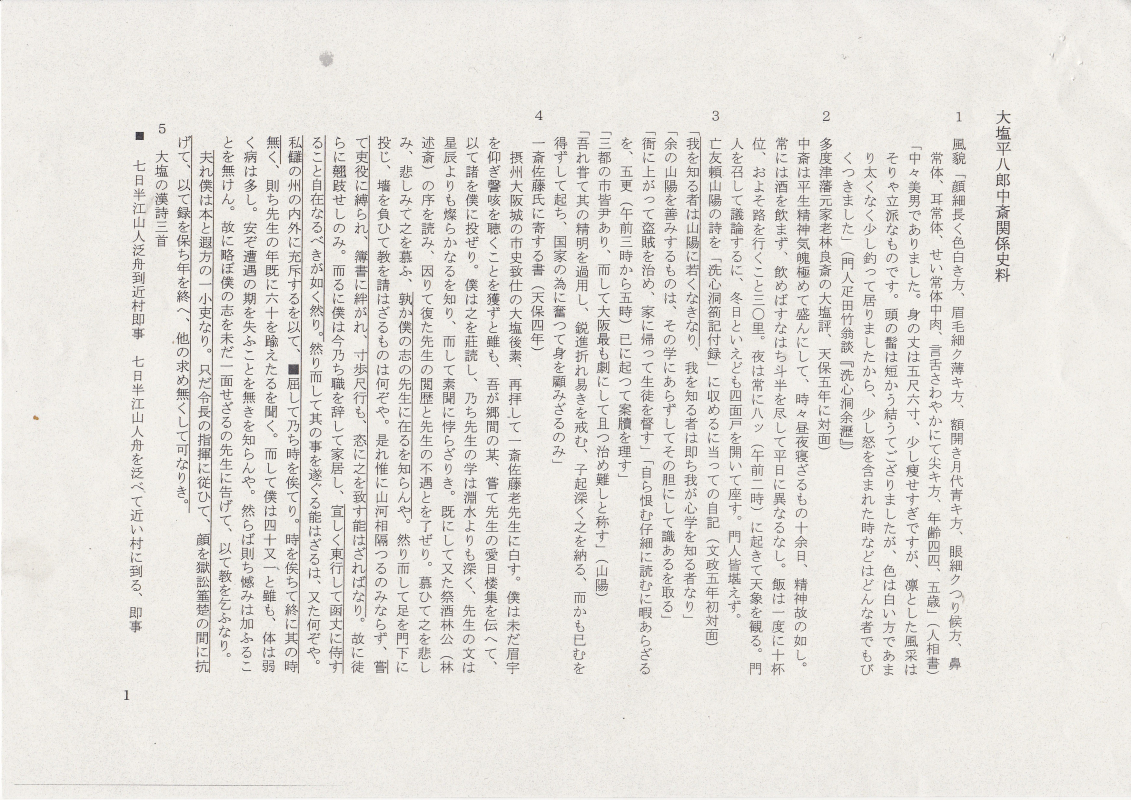 大塩平八郎中斎関係史料
1 風貌「顔細長く色白き方、眉毛細ク薄キ方、額開き月代青キ方、眼細クつり候方、鼻
常体、耳常体、せい常体中肉、言舌さわやかにて尖キ方、年齢四四、五歳」（人相書）
「中々美男でありました。身の丈は五尺六寸、少し痩せすぎですが、凛とした風采は
そりや立派なものです。頭の髷は短かう結うてございましたが、色は白い方であま
り太くなく少し釣って居りましたから、少し怒を含まれた時などはどんな者でもび
くつきました」（門人疋田竹翁談『洗心洞余瀝』）
2 多度津藩元家老林良斎の大塩評、天保五年に対面）
中斎は平生精神気魄極めて盛んにして、時々昼夜寝ざるもの十余日、精神故の如し。
常には酒を飲まず、飲めばすなはち斗半を尽して平日に異なるなし。飯は一度に十杯
位、およそ路を行くこと三〇里。夜は常に八ッ（午前二時）に起きて天象を観る。門
人を召して議論するに、冬日といえども四面戸を開いて座す。門人皆堪えず。
3 亡友頼山陽の詩を「洗心洞箚記付録」に収めるに当っての自記（文政五年初対面）
「我を知る者は山陽に若くなきなり、我を知る者は即ち我が心学を知る者なり」
「余の山陽を善みするものは、その学にあらずしてその胆にして識あるを取る」
「衙に上がって盗賊を治め、家に帰って生徒を督す」「自ら恨む仔細に読むに暇あらざる
を、五更（午前三時から五時）已に起つて案牘を理す」
「三都の市皆尹あり、而して大阪最も劇にして且つ治め難しと称す」（山陽）
「吾れ嘗て其の精明を過用し、鋭進折れ易きを戒む、子起深く之を納る、而かも已むを
得ずして起ち、国家の為に奮つて身を顧みざるのみ」
4 一斎佐藤氏に寄する書（天保四年）
摂州大阪城の市史致仕の大塩後素、再拝して一斎佐藤老先生に白す。僕は未だ眉宇
を仰ぎ謦咳を聴くことを獲ずと雖も、吾が郷間の某、嘗て先生の愛日楼集を伝へて、
以て諸を僕に投ぜり。僕は之を荘読し、乃ち先生の学は淵水よりも深く、先生の文は
星辰よりも燦らかなるを知り、而して素聞に悖らざりき。既にして又た祭酒林公（林
述斎）の序を読み、因りて復た先生の閲歴と先生の不遇とを了ぜり。慕ひて之を悲し
み、悲しみて之を慕ふ、孰か僕の志の先生に在るを知らんや。然り而して足を門下に
投じ、墻を負ひて教を請はざるものは何ぞや。是れ惟に山河相隔つるのみならず、嘗
て吏役に縛られ、簿書に絆がれ、寸歩尺行も、恣に之を致す能はざればなり。故に徒
らに翹跂せしのみ。而るに僕は今乃ち職を辞して家居し、宜しく東行して函丈に侍す
ること自在なるべきが如く然り。然り而して其の事を遂ぐる能はざるは、又た何ぞや。
私讎の州の内外に充斥するを以て、■屈して乃ち時を俟てり。時を俟ちて終に其の時
無く、則ち先生の年既に六十を踰えたるを聞く。而して僕は四十又一と雖も、体は弱
く病は多し。安ぞ遭遇の期を失ふことを無きを知らんや。然らば則ち憾みは加ふるこ
とを無けん。故に略ぼ僕の志を未だ一面せざるの先生に告げて、以て教を乞ふなり。
夫れ僕は本と遐方の一小吏なり。只だ令長の指揮に従ひて、顔を獄訟箠楚の間に抗
げて、以て録を保ち年を終へ、他の求め無くして可なりき。
5 大塩の漢詩三首
■ 七日半江山人泛舟到近村即事 七日半江山人舟を泛べて近い村に到る、即事
1